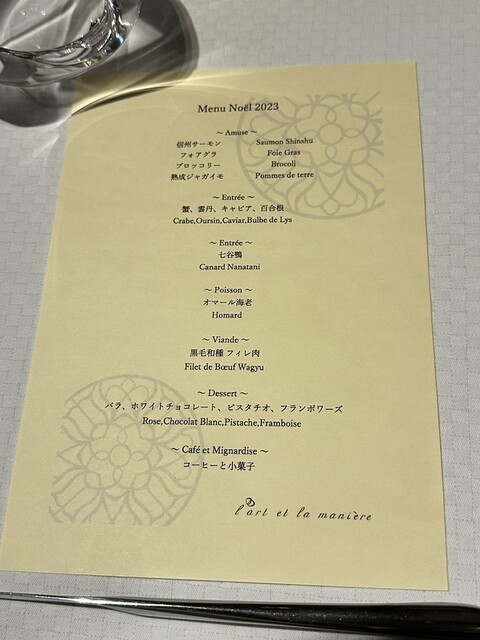 Menu Noël 2023
～ Amuse ～
信州サーモン Saumon Shinshu
フォアグラ Foie Gras
ブロッコリー Brocoli
熟成ジャガイモ Pommes de terre
～ Entrée ～
蟹、雲丹、キャビア、百合根
Crabe,Oursin,Caviar,Bulbe de Lys
～ Entrée ～
七谷鴨
Canard Nanatani
～ Poisson ～
オマール海老
Homard
～ Viande ～
黒毛和種 フィレ肉
Filet de Bœuf Wagyu
～ Dessert ～
バラ、ホワイトチョコレート、ピスタチオ、フランボワーズ
Rose,Chocolat Blanc,Pistache,Framboise
～ Café et Mignardise ～
コーヒーと小菓子
l'art et la manière